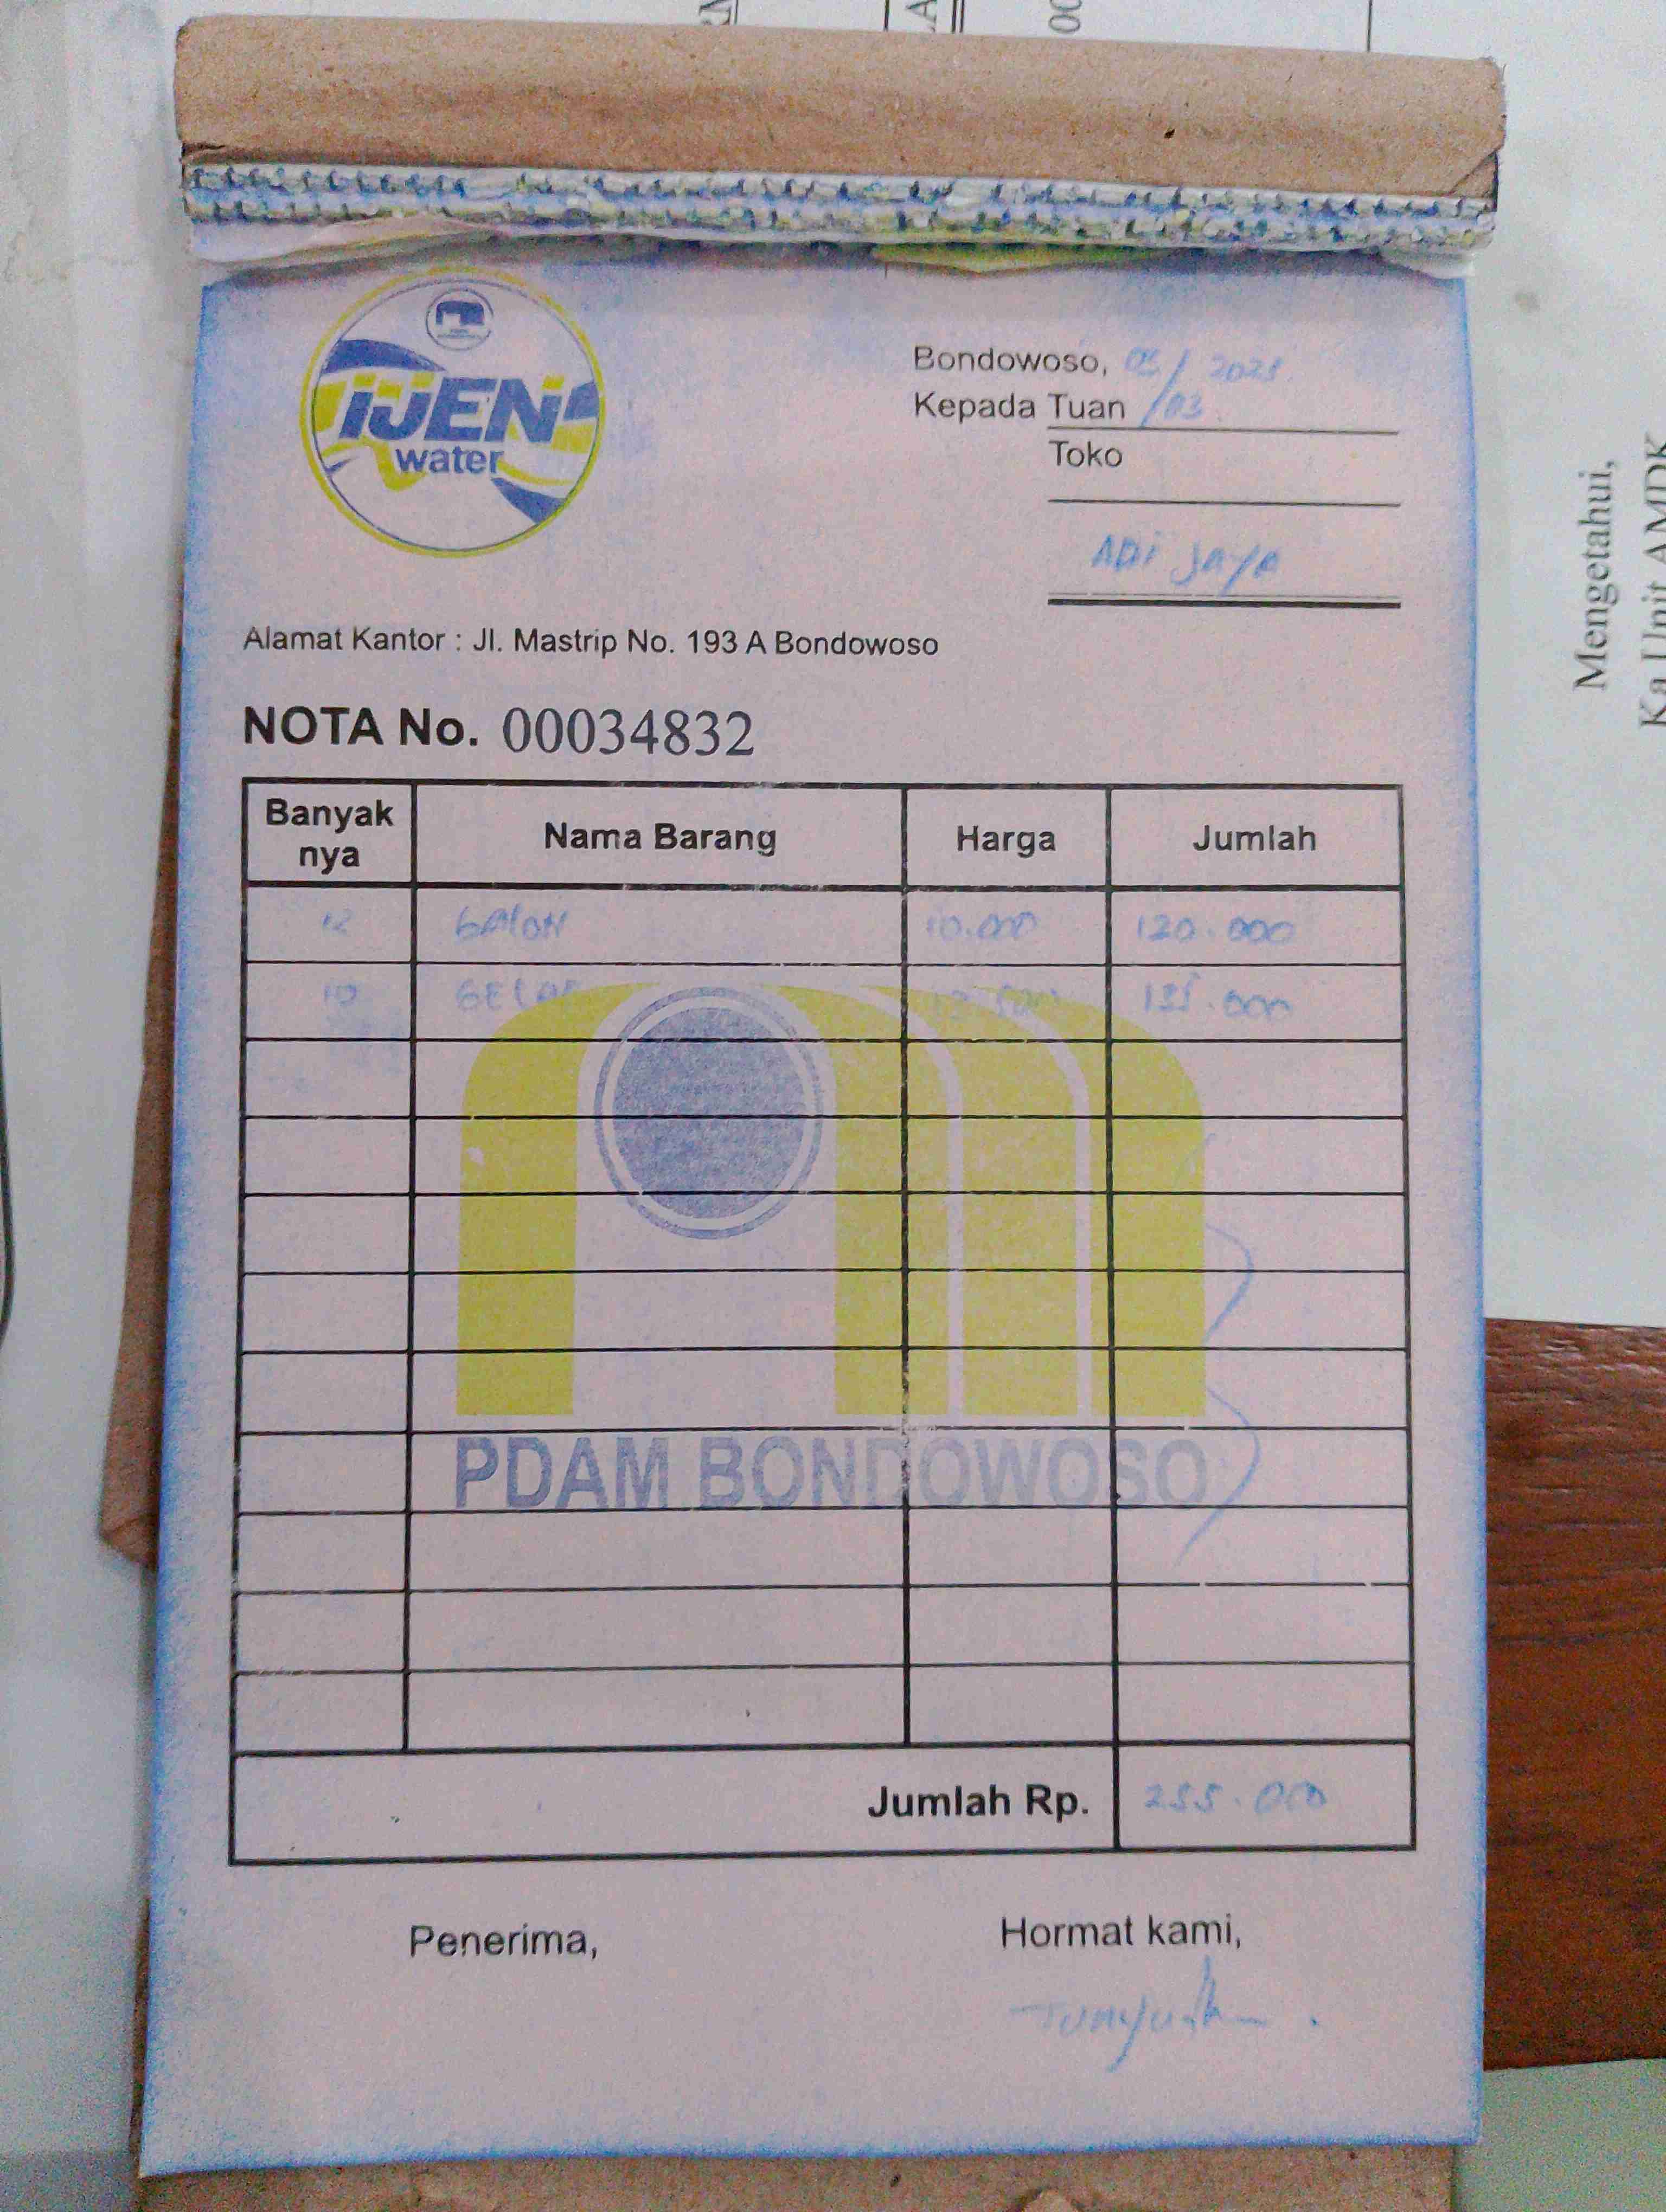 IJEN
water
Bondowoso, 03 / 2023
Kepada Tuan /03
Toko
ADI JAYA
Alamat Kantor : Jl. Mastrip No. 193 A Bondowoso
NOTA No. 00034832
Banyak nya Nama Barang Harga Jumlah
12 GALON 10.000 120.000
10 GELAS 13.500 135.000
PDAM BONDOWOSO
Jumlah Rp. 255.000
Penerima, Hormat kami,
Mengetahui,
Ka Unit AMDK